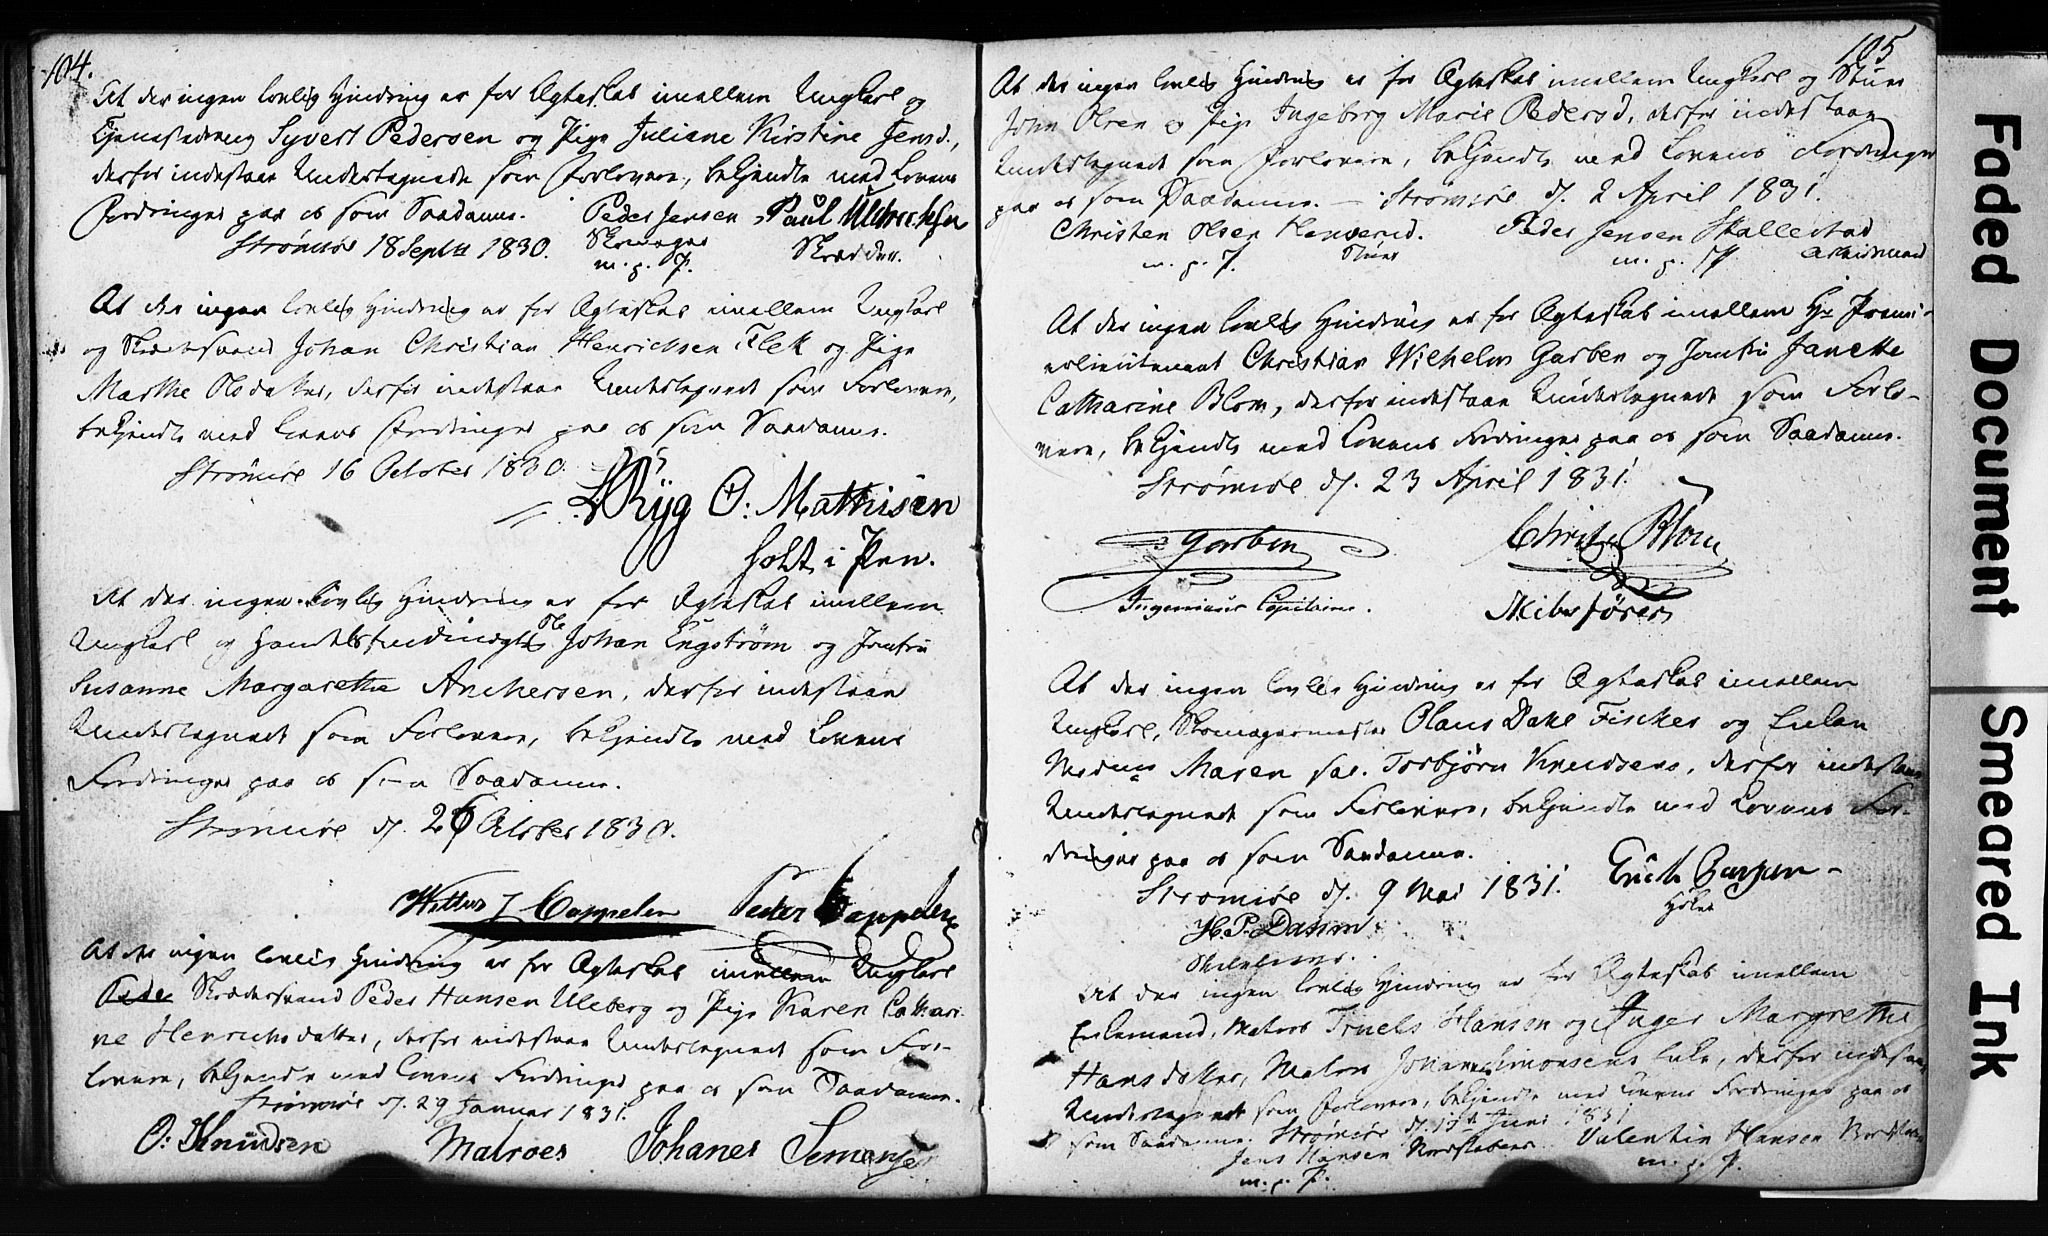 104.
At der ingen lovlig Hindring er for Ægteskab imellem Ungkarl og
Tjenestedreng Syvert Pedersen og Pige Juliane Kirstine Jensd.,
derfor indestaae Undertegnede som Forlovere, bekjendte med Lovens
Fordringer paa os som Saadanne. Peder Jensen Paul Uldrichsen
Strømsøe 18 Septbr 1830. Skomager Skrædder.
m. p. P.
At der ingen lovlig Hindring er for Ægteskab imellem Ungkarl
og Skrædersvend Johan Christian Henrichsen Flek og Pige
Marthe Olsdatter, derfor indestaae Undertegnede som Forlovere,
bekjendte med Lovens Fordringer paa os som Saadanne.
Strømsøe 16 October 1830.
Ryg O: Mathisen
holt i Pen.
At der ingen lovlig Hindring er for Ægteskab imellem
Ungkarl og Handelsfuldmægtig Ole Johan Engstrøm og Jomfru
Susanne Margarethe Anchersen, derfor indestaae
Undertegnede som Forlovere, bekjendte med Lovens
Fordringer paa os som Saadanne.
Strømsøe d. 26 October 1830.
Cappelen Peder Cappelen
At der ingen lovlig Hindring er for Ægteskab imellem Ungkarl
Peder Skræddersvend Peder Hansen Uleberg og Pige Karen Cathari-
ne Henrichsdatter, derfor indestaae Undertegnede som For-
lovere, bekjendte med Lovens Fordringer paa os som Saadanne.
Strømsøe d. 29 Januar 1831.
O: Knudsen Matroes Johanes Semensen
105
At der ingen lovlig Hindring er for Ægteskab imellem Ungkarl og Stuer
John Olsen og Pige Ingeborg Marie Pedersd, derfor indestaae
Undertegnede som Forlovere, bekjendte med Lovens Fordringer
paa os som Saadanne. — Strømsøe d. 2 April 1831.
Christen Olsen Peder Jensen Skallestad
m. p. P. Stuer m. p. P. Arbeidsmand
At der ingen lovlig Hindring er for Ægteskab imellem Hr Premi-
erlieutenant Christian Wilhelm Garben og Jomfru Janette
Catharine Blom, derfor indestaae Undertegnede som Forlo-
vere, bekjendte med Lovens Fordringer paa os som Saadanne.
Strømsøe d. 23 April 1831.
Garben Christen Blom
Ingenieur Capitaine. Skibsfører
At der ingen lovlig Hindring er for Ægteskab imellem
Ungkarl, Skomagermester Olaus Dahl Fischer og Enken
Madme Maren sal. Torbjørn Knudsens, derfor indestaae
Undertegnede som Forlovere, bekjendte med Lovens For-
dringer paa os som Saadanne.
Strømsøe d. 9 Mai 1831. Erich
H. P. Dahm
At der ingen lovlig Hindring er for Ægteskab imellem
Enkemand, Matros Truels Hansen og Inger Margrethe
Hansdatter, Matros Johannes Simonsens Enke, derfor indestaae
Undertegnede som Forlovere, bekjendte med Lovens Fordringer paa os
som Saadanne. Strømsøe d. Juni 1831
Jens Hansen Valentin Hansen
m. p. P. m. p. P.
Faded Document
Smeared Ink